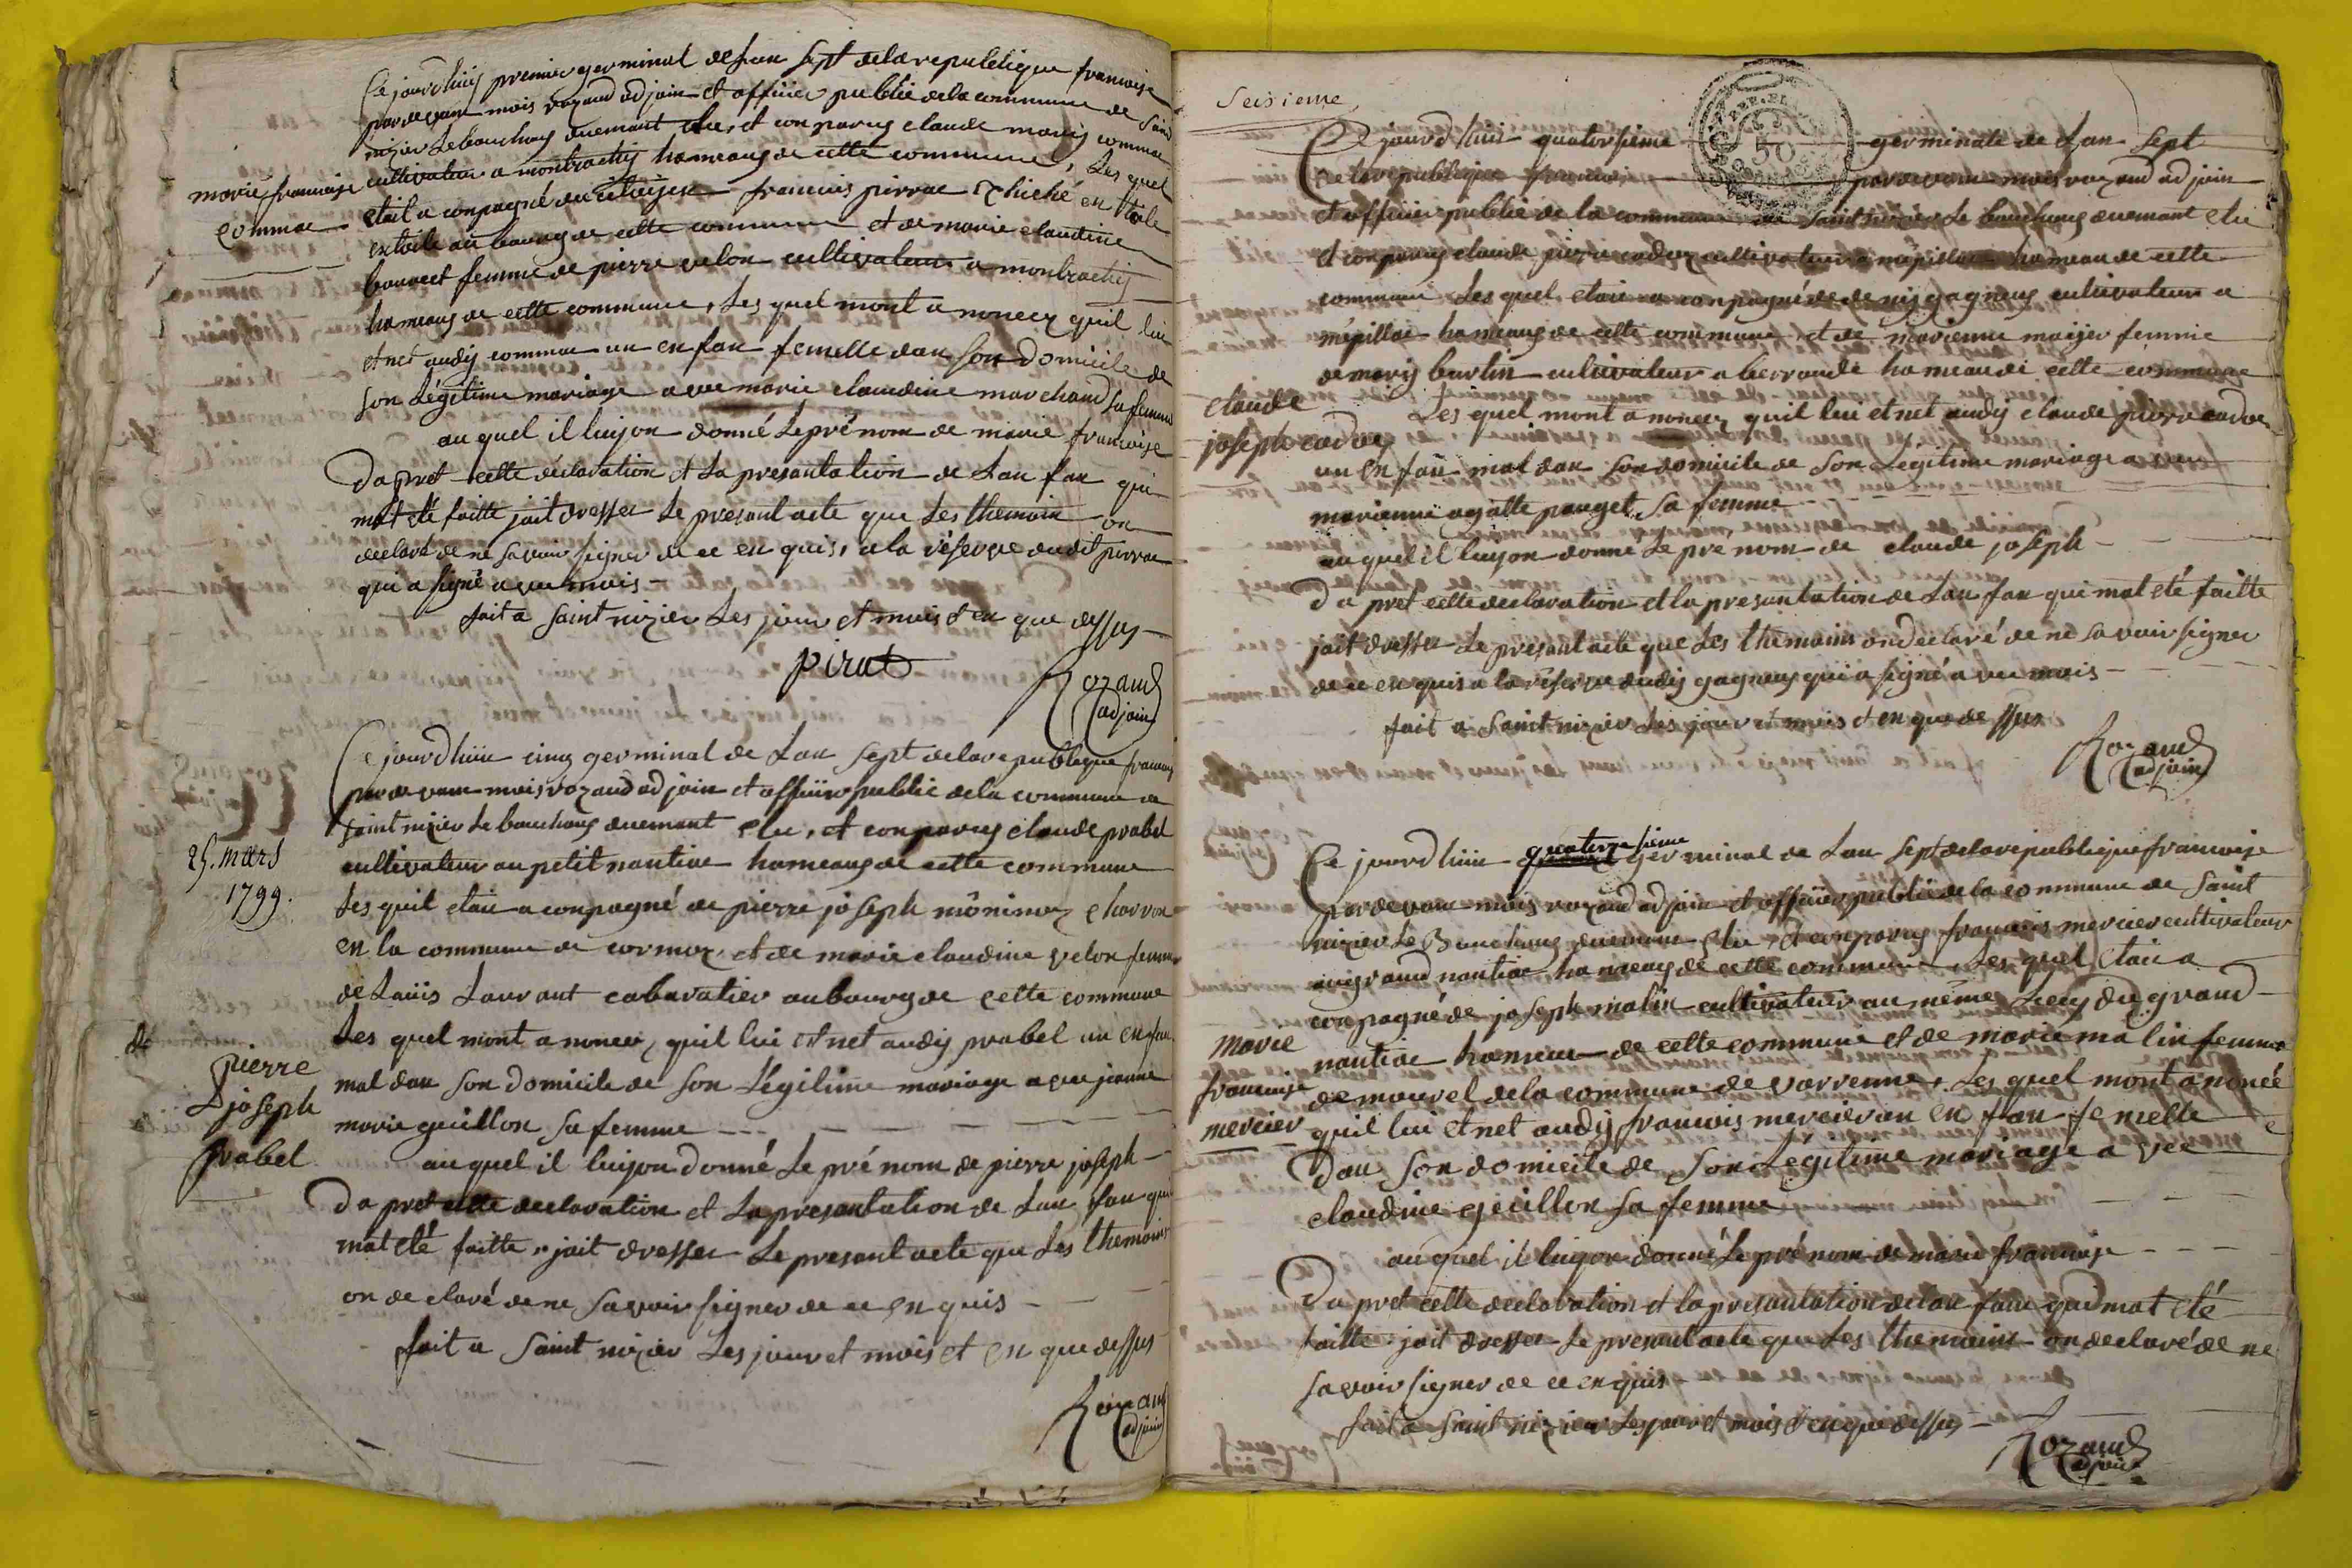 Ce jourdhuij premier germinal de lan sept dela republique francoise
pardevam mois rozand adjoin et officier publie dela commune de Saint
nizier Lebouchoux duemant elue, et conparus claude marij commae
cultivateur a montrachij hameaus de cette commune, Les quel
etait a conpagné du citoijen francois pirrae
extoile au bourg de cette commune et de marie claudine
bouveet femme de pierre velon cultivateur a montrachij
hameaus de cette commune, Les quel mont a noncez quil lui
etnet audij commae un en fan femelle dan son domicile de
son Légitime mariage avec marie claudine marchand sa femme
au quel il luijon donné Le prénom de marie francoise
Da pret cette déclaration et La presantation de Lan fan qui
mat eté faitte jait dresser Le presant acte que Les themoin on
declaré de ne savoir signer de ce en quis, a la réserve dudit pirrae
qui a signé avec mois
fait a Saint nizier Les jour et mois et en que dessus
pirat
Rozand
adjoin
marie francoise
commae
Ce jourdhuie cinq germinal de Lan Sept dela republique francois
par de vam mois rozand adjoin et officier publie dela commune de
Saint nizier Le bouchoux duemant elue, et conparus claude prabel
cultivateur au petit nantiae hameaus de cette commune
Les quil etait a conpagné de pierre joseph mônimoz charron
en la commune de cormoz et de marie claudine velon femme
de Lauis Laurant cabaratier au bourg de cette commune
Les quel mont a noncer, quil lui etnet audij prabel un en fan
mal dan son domicile de son Légitime mariage avec jeanne
marie guillon sa femme
au quel il luijon donné Le pré nom de pierre joseph
Da pret cette declaration et La presantation de Lan fan qui
mat eté faitte jait dresser Le presant acte que Les themoins
on declaré de ne savoir signer de ce en quis
fait a Saint nizier Les jour et mois et en que dessus
Rozand
adjoin
25. mars
1799.
pierre
joseph
prabel
Seisieme
Ce jourd huie quatorsieme germinale de Lan Sept
De la republique francois par de vam mois rozand ad join
et officier publie de la commune de Saint nizier Le bouchoux duemant elu
et conparus claude pierre cadoz cultivateur a mépillae hameau de cette
commune Les quel etait a conpagné de denis gagneus cultivateur a
mépillae hameaus de cette commune, et de marienne maijer femme
de marij burtin cultivateur a berraude hameau de cette commune
Les quel mont a noncez quil lui etnet audij claude pierre cadoz
un en fan mal dan son domicile de son Légitime mariage avec
marienne agatte pauget sa femme
au quel il luijon donne Le pre nom de claude joseph
Da pret cette declaration et la presantation de Lan fan qui mat eté faitte
jait dresser Le presant acte que Les themoins on declaré de ne savoir signer
de ce en quis a la réserve dudij gagneus qui a signé avec mois
fait a Saint nizier Les jour et mois et en que dessus
Rozand
adjoin
claude
joseph cadoz
Ce jourd huie quatorzesieme germinal de Lan Sept dela republique francoise
par de vam mois rozand ad join et officier publie de la commune de Saint
nizier Le Bouchoux duemant elu, et conparus francois mercier cultivateur
au grand nantiae hameaus de cette commune, Les quel etait a
conpagné de joseph malin cultivateur au même Lieu du grand
nantiae hameau de cette commune et de marie malin femme
de mourel dela commune de varrenne, Les quel mont a noncée
quil lui etnet audij francois mercier un en fan femelle
Dan son domicile de son Légitime mariage a vec
claudine guillon sa femme
au quel il luijon donné Le pré nom de marie francoise
Da pret cette declaration et la presantation de Lan fan qui mat eté
faitte jait dresser Le presant acte que Les themoins on declaré de ne
savoir signer de ce en quis
fait a Saint nizier Les jour et mois et en que dessus
Rozand
adjoin
marie
francoise
mercier